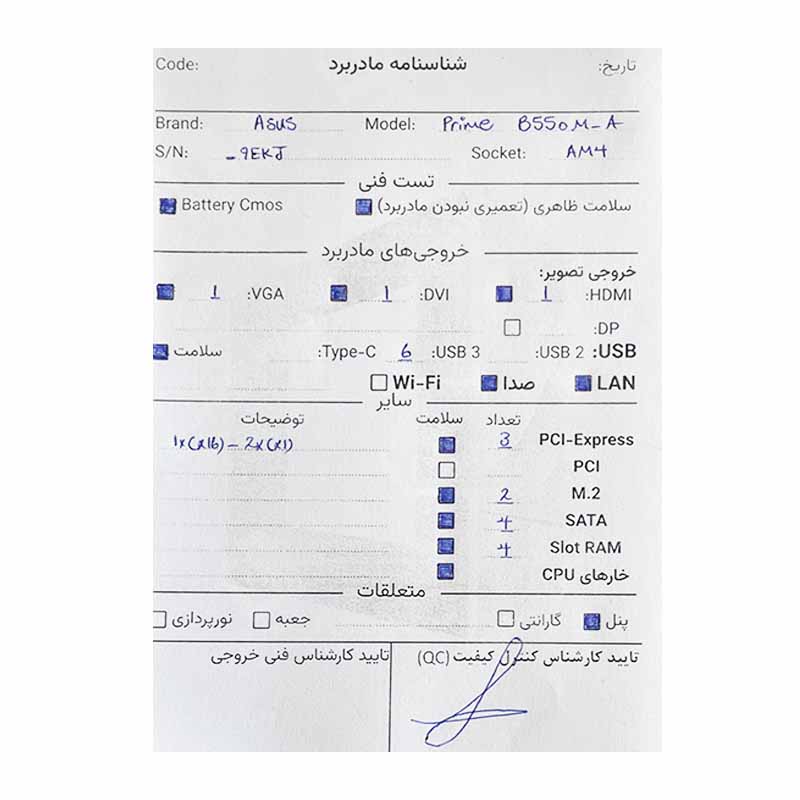 تاریخ: شناسنامه مادربرد Code:
Brand: ASUS Model: Prime B550M-A
S/N: -9EKJ Socket: AM4
تست فنی
سلامت ظاهری (تعمیری نبودن مادربرد) Battery Cmos
خروجی‌های مادربرد
خروجی تصویر:
HDMI: 1 DVI: 1 VGA: 1
DP:
USB: USB 2: USB 3: 6 Type-C: سلامت
LAN صدا Wi-Fi
سایر
تعداد سلامت توضیحات
PCI-Express 3 1x(x16) - 2x(x1)
PCI
M.2 2
SATA 4
Slot RAM 4
خارهای CPU
متعلقات
پنل گارانتی جعبه نورپردازی
تایید کارشناس کنترل کیفیت (QC) تایید کارشناس فنی خروجی